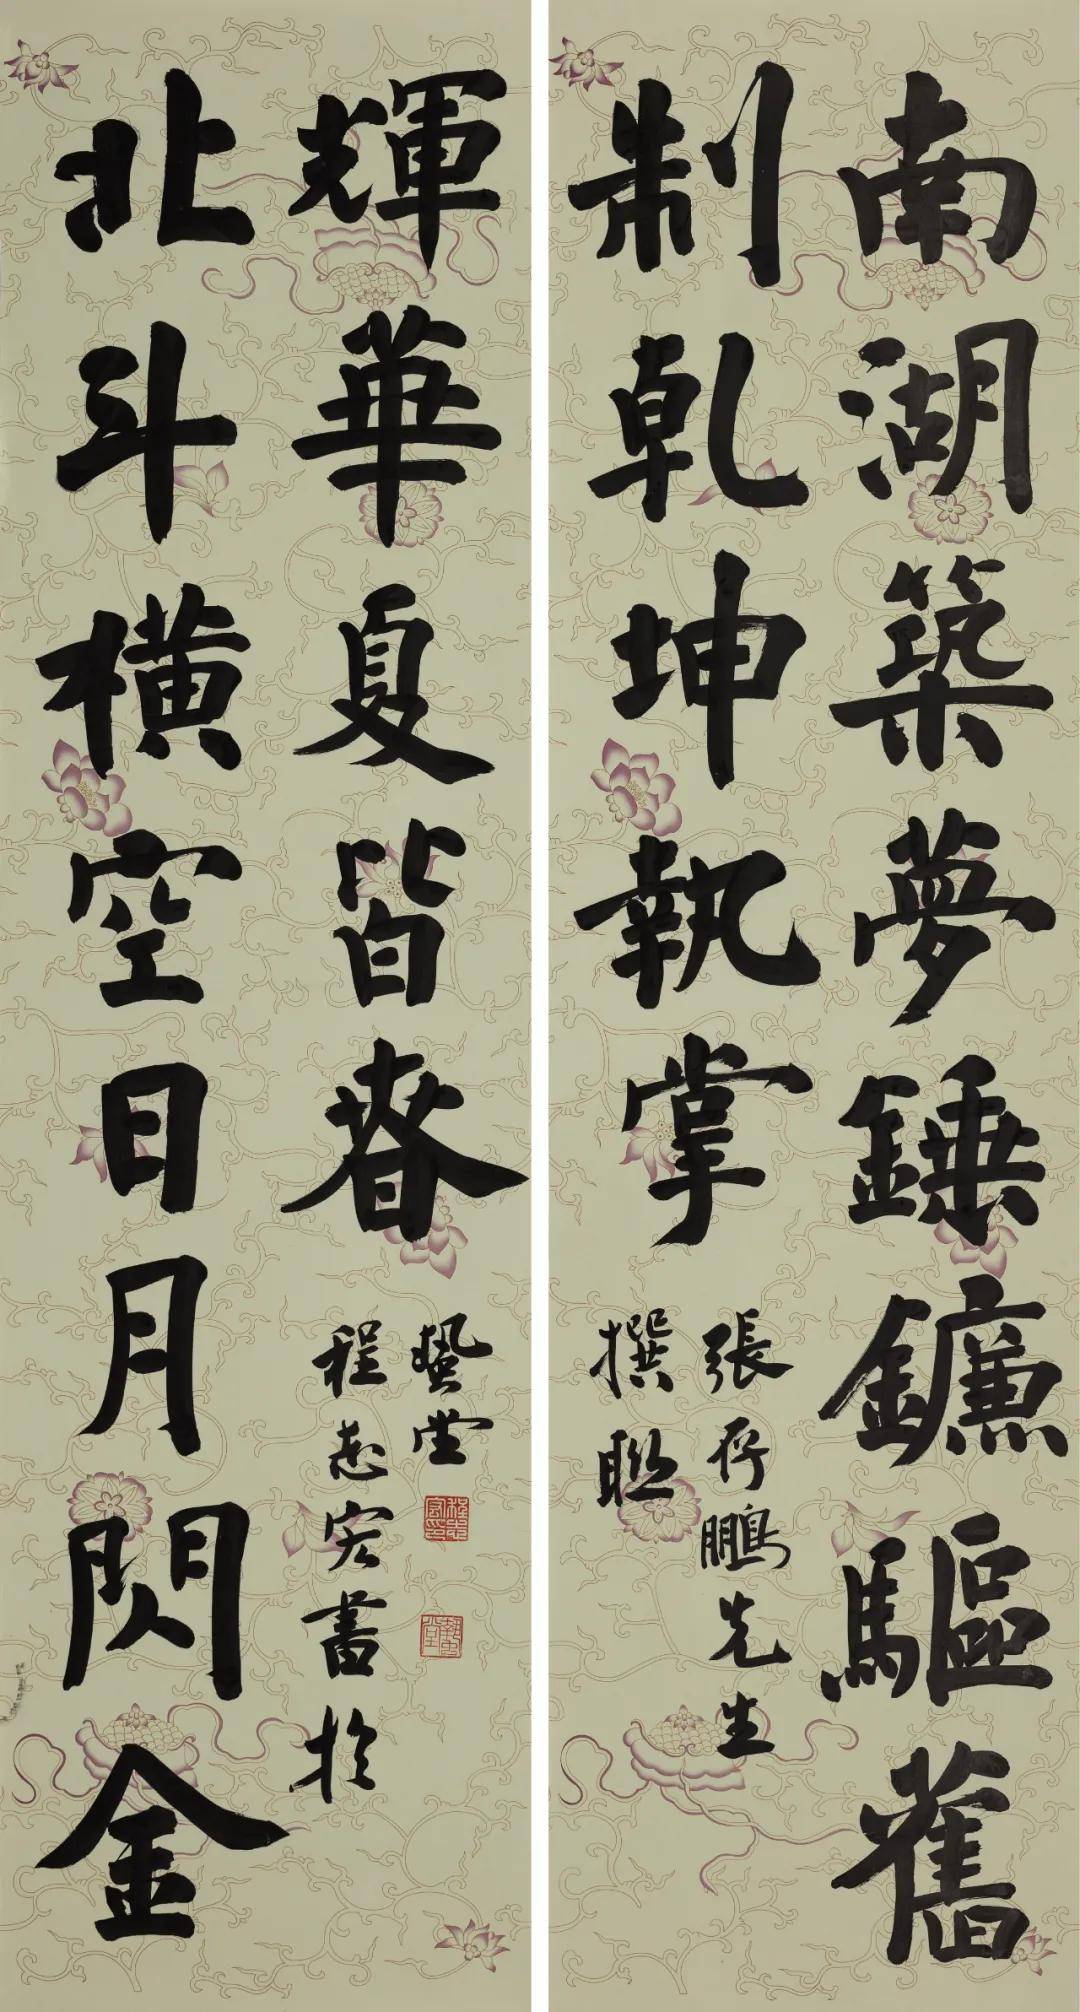 南湖築夢錘鐮驅舊
制乾坤執掌
張存鵬先生
撰聯
北斗橫空日月閃金
輝華夏皆春
程志宏書於
堂
程志宏印